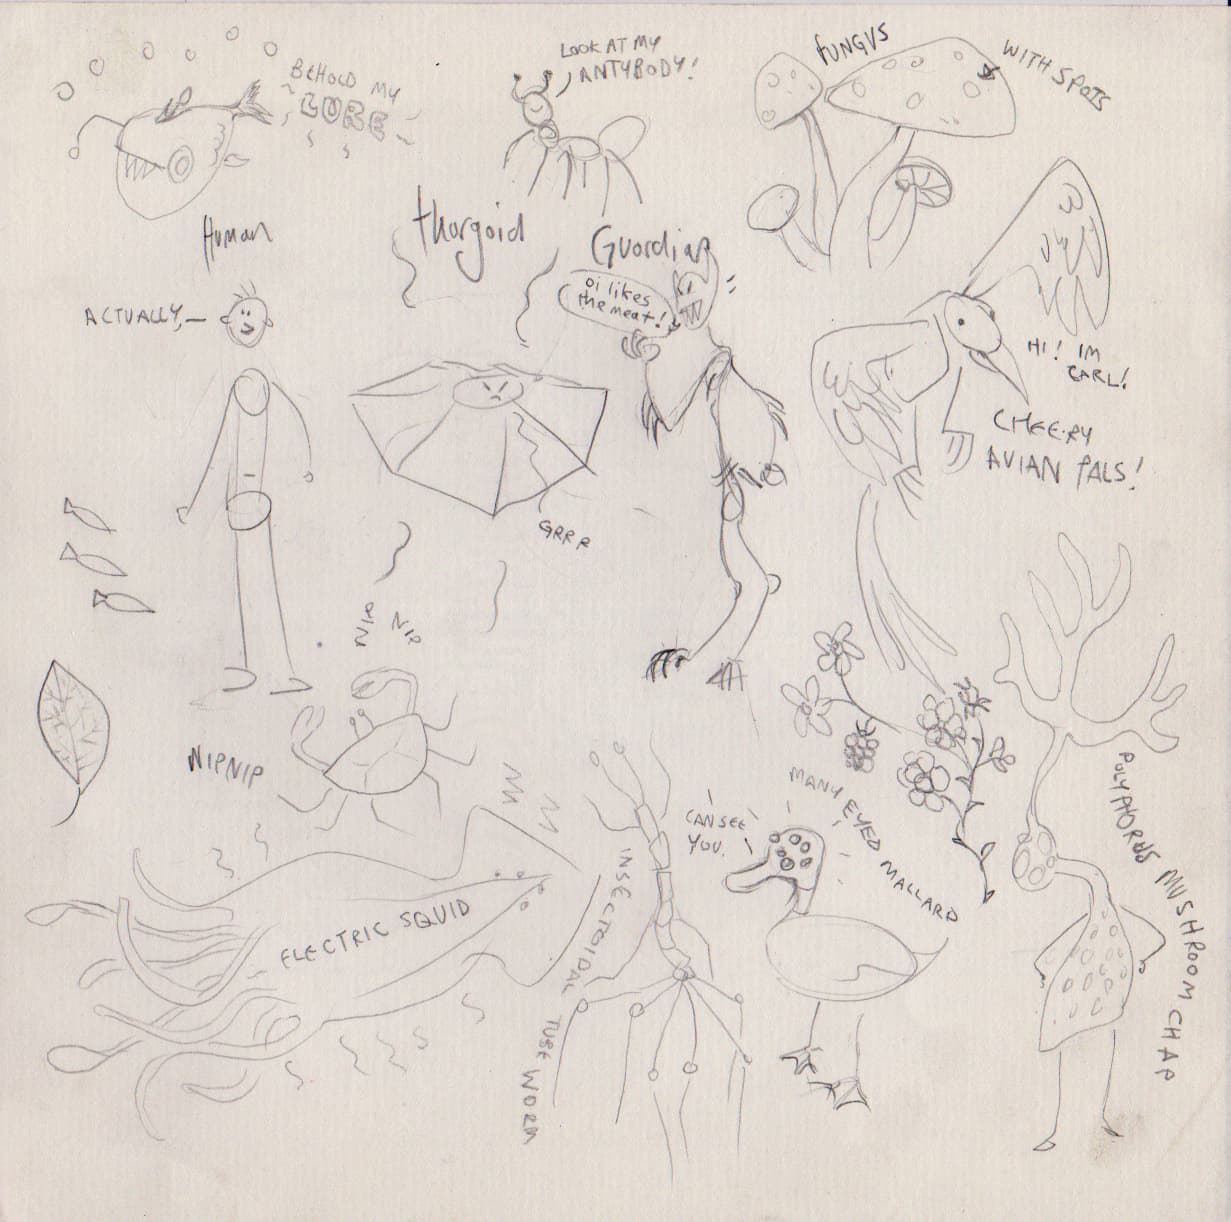 BEHOLD MY
LURE
LOOK AT MY
ANTYBODY!
FUNGUS
WITH SPOTS
Human
thorgoid
Guardian
oi likes
the meat!
ACTUALLY,—
HI! IM
CARL!
CHEERY
AVIAN PALS!
GRRR
NIP NIP
NIPNIP
ELECTRIC SQUID
INSECTOIDAL TUBE WORM
CAN SEE
YOU.
MANY EYED MALLARD
POLYPHORUS MUSHROOM CHAP